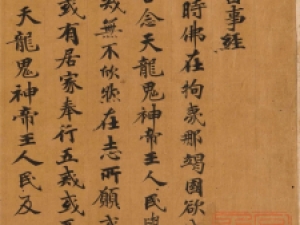 事經
時佛在拘夷那竭國欲
念天龍鬼神帝王人民
戒無不欣然在志所願或
或有居家奉行五戒或
天龍鬼神帝王人民及